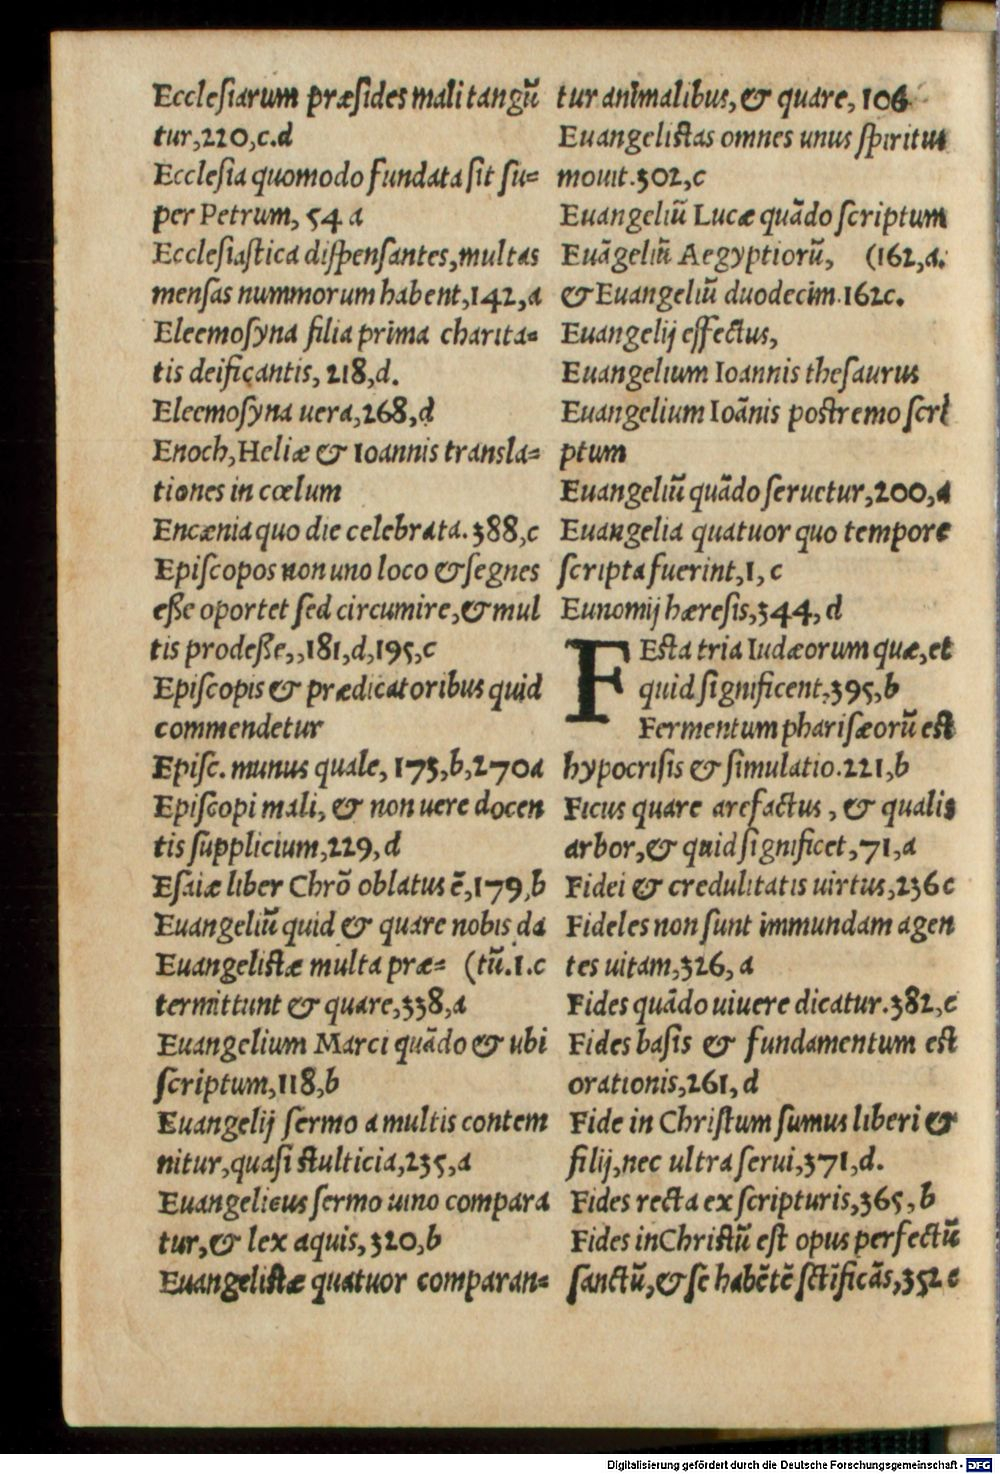 Eccleſiarum præſides mali tangũ
tur,220,c.d
Eccleſia quomodo fundata ſit ſu=
per Petrum, 54 a
Eccleſiaſtica diſpenſantes,multas
menſas nummorum habent,142,a
Eleemoſyna filia prima charita=
tis deificantis, 218,d.
Eleemoſyna uera,268,d
Enoch,Heliæ & Ioannis transla=
tiones in cœlum
Encænia quo die celebrata.388,c
Epiſcopos non uno loco & ſegnes
eſſe oportet ſed circumire,& mul
tis prodeſſe,,181,d,195,c
Epiſcopis & prædicatoribus quid
commendetur
Epiſc. munus quale, 175,b,270a
Epiſcopi mali, & non uere docen
tis ſupplicium,229,d
Eſaiæ liber Chrõ oblatus ẽ,179,b
Euangeliũ quid & quare nobis da
Euangeliſtæ multa præ= (tũ.1.c
termittunt & quare,338,a
Euangelium Marci quãdo & ubi
ſcriptum,118,b
Euangelij ſermo a multis contem
nitur,quaſi ſtulticia,235,a
Euangelicus ſermo uino compara
tur,& lex aquis,320,b
Euangeliſtæ quatuor comparan=
tur animalibus,& quare,106
Euangeliſtas omnes unus ſpiritus
mouit.302,c
Euangeliũ Lucæ quãdo ſcriptum
Euãgeliũ Aegyptiorũ, (162,a.
& Euangeliũ duodecim.162c.
Euangelij effectus,
Euangelium Ioannis theſaurus
Euangelium Ioãnis poſtremo ſcri
ptum
Euangeliũ quãdo ſeruetur,200,a
Euangelia quatuor quo tempore
ſcripta fuerint,1,c
Eunomij hæreſis,344,d
FEſta tria Iudæorum quæ,et
quid ſignificent,395,b
Fermentum phariſæorũ eſt
hypocriſis & ſimulatio.221,b
Ficus quare arefactus, & qualis
arbor,& quid ſignificet,71,a
Fidei & credulitatis uirtus,236c
Fideles non ſunt immundam agen
tes uitam,326, a
Fides quãdo uiuere dicatur.382,c
Fides baſis & fundamentum eſt
orationis,261, d
Fide in Chriſtum ſumus liberi &
filij,nec ultra ſerui,371,d.
Fides recta ex ſcripturis,365,b
Fides inChriſtũ eſt opus perfectũ
ſanctũ,&ſe habẽtẽ ſctĩficãs,352 c
Digitalisierung gefördert durch die Deutsche Forschungsgemeinschaft - DFG